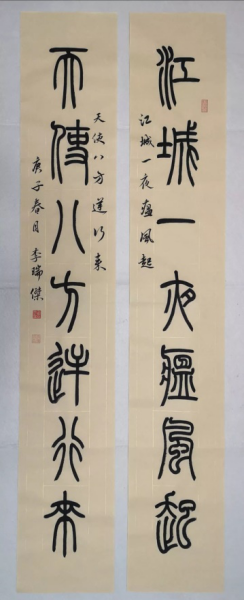 江城一夜瘟風起
江城一夜瘟風起
天使八方逆行来
天使八方逆行来
庚子春月 李瑞傑